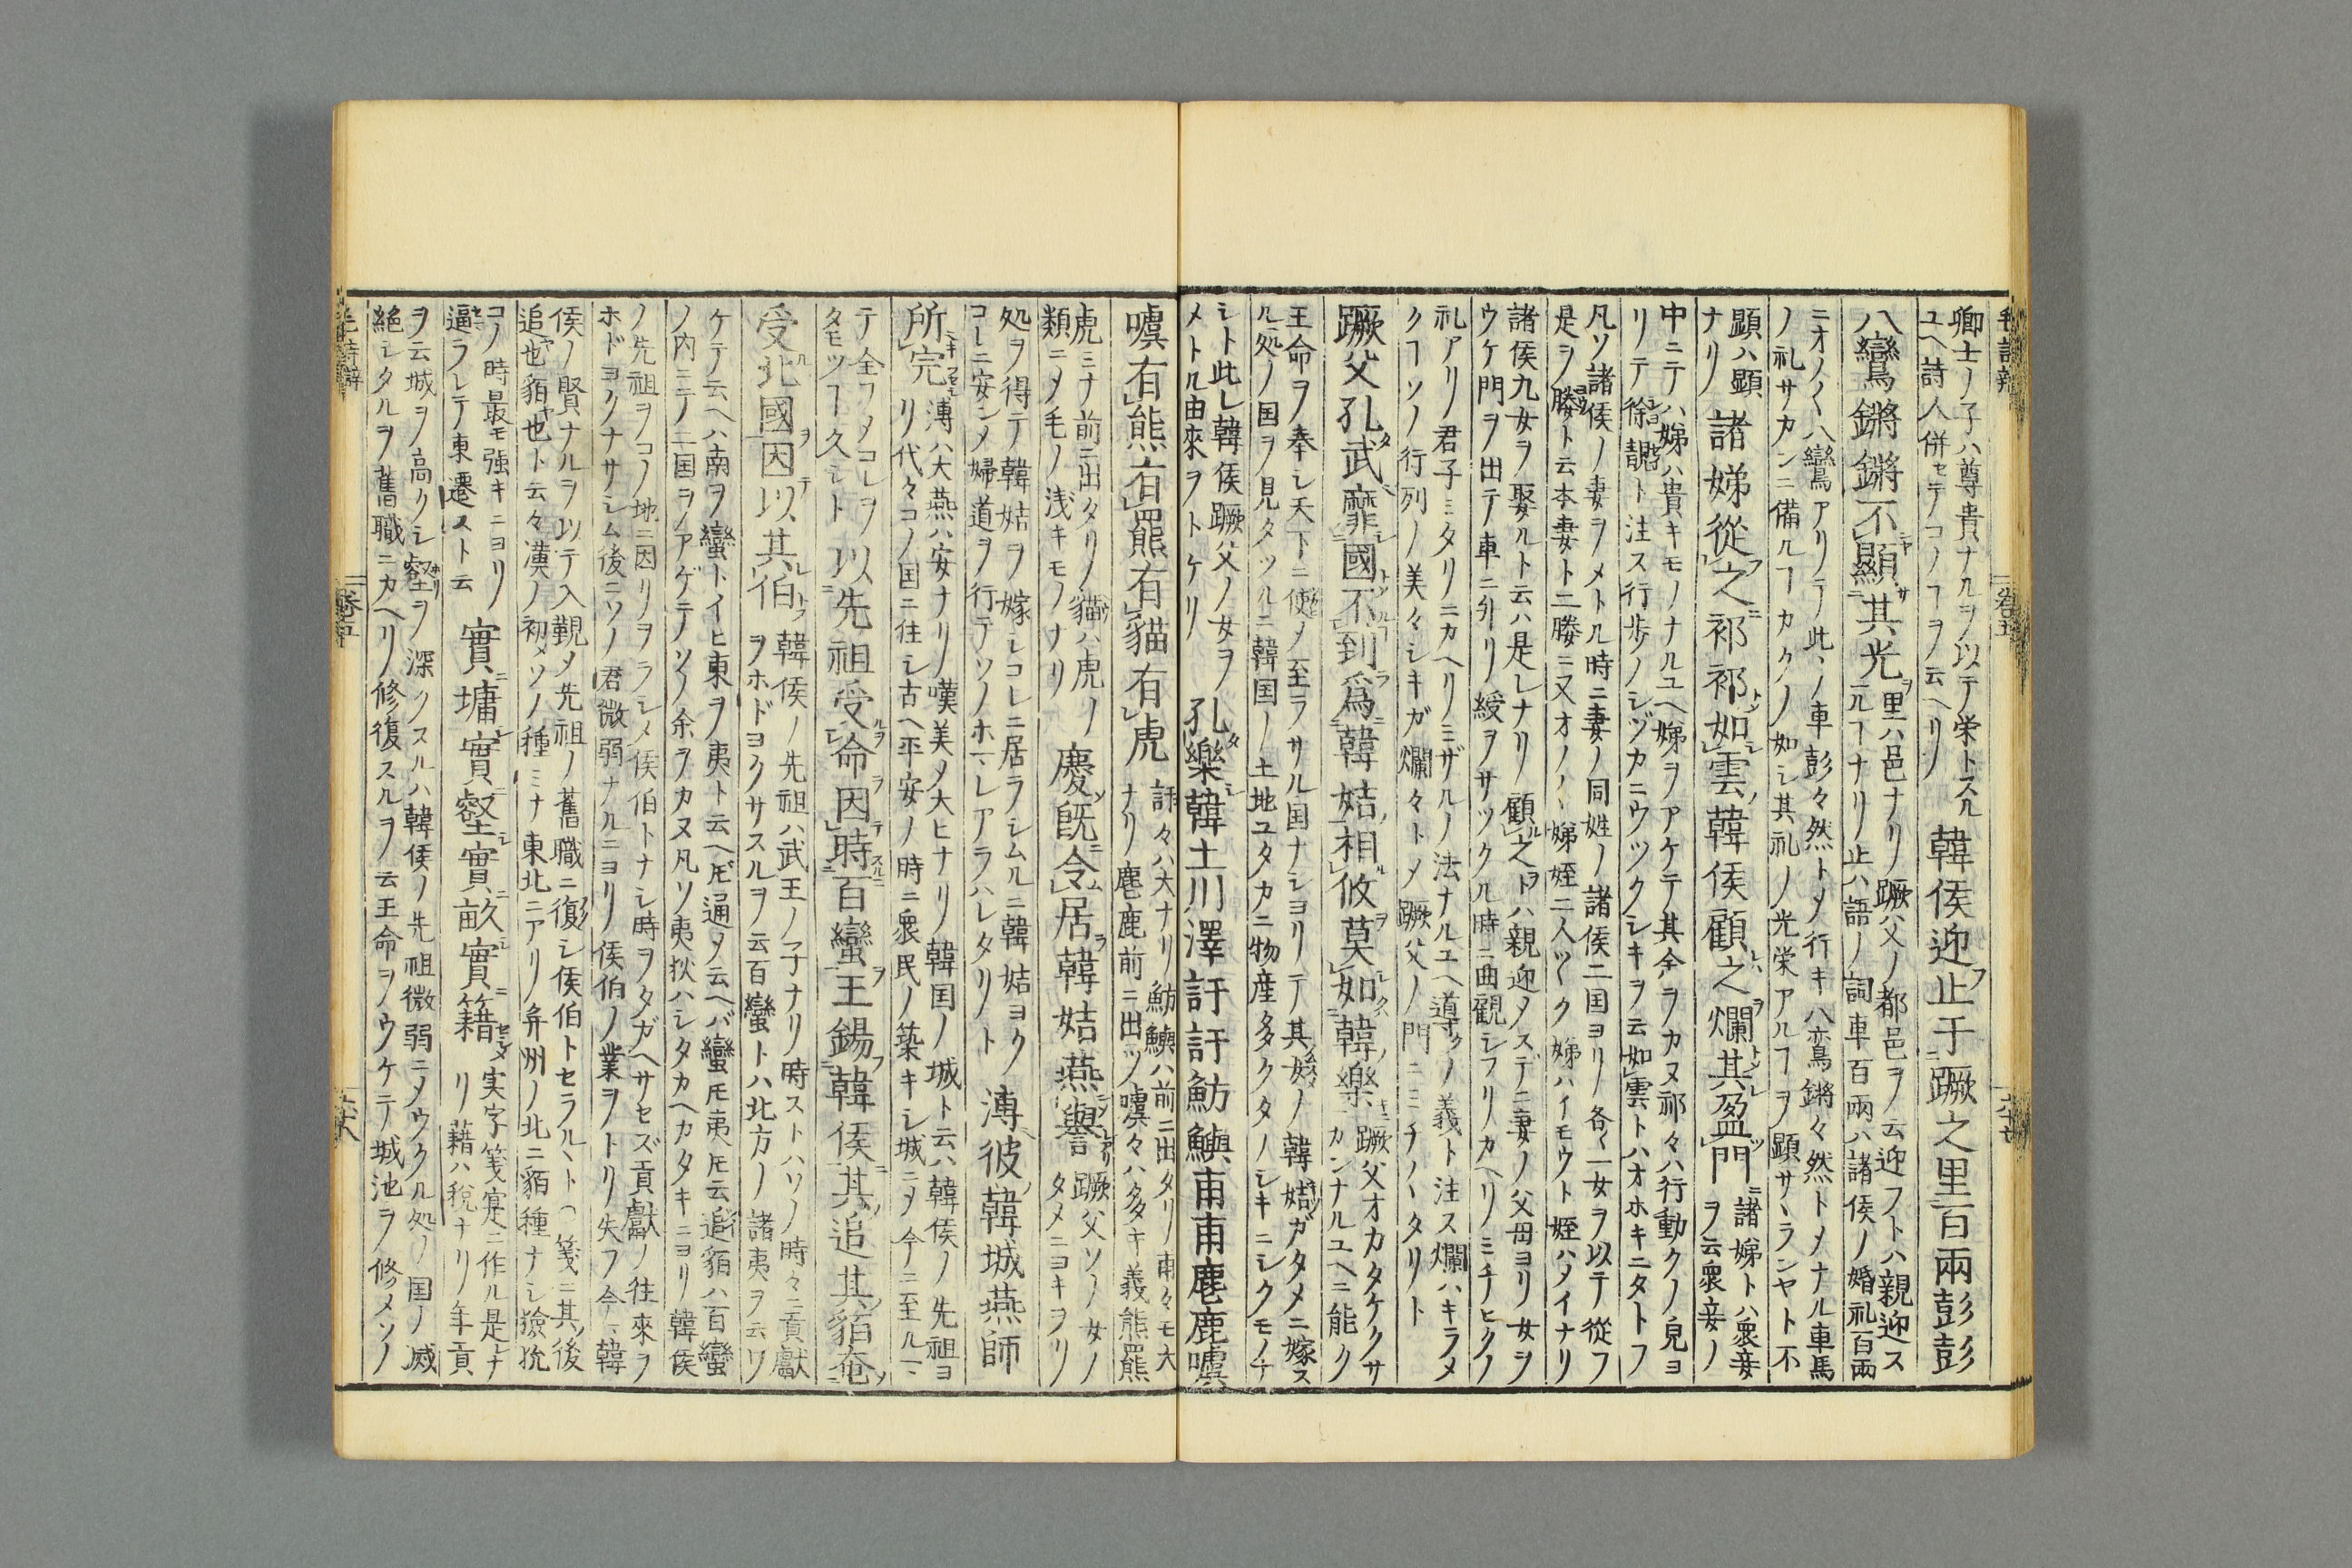 毛詩辨
卷五
六十七
卿士ノ子ハ尊貴ナルヲ以テ栄トスル
ユヘ詩人併セテコノヿヲ云ヘリ
韓侯迎止于蹶之里百兩彭彭
八鸞鏘鏘不顯其光
里ハ邑ナリ蹶父ノ都邑ヲ云迎フトハ親迎ス
ルヿナリ止ハ語ノ詞車百兩ハ諸侯ノ婚礼百兩
ニオノ〱八鸞アリテ此ノ車彭々然トメ行キ八鸞鏘々然トメナル車馬
ノ礼サカンニ備ルヿカクノ如シ其礼ノ光栄アルヿヲ顕サヽランヤト不
顯ハ顯
ナリ
諸娣從之祁祁如雲韓侯顧之爛其盈門
諸娣トハ衆妾
ヲ云衆妾ノ
中ニテハ娣ハ貴キモノナルユヘ娣ヲアケテ其余ヲカヌ祁々ハ行動クノ皃ヨ
リテ徐靚ト注ス行歩ノシヅカニウツクシキヲ云如雲トハオホキニタトフ
凡ソ諸侯ノ妻ヲメトル時ニ妻ノ同姓ノ諸侯二国ヨリ各々一女ヲ以テ從フ
是ヲ媵ト云本妻ト二媵ニ又オノ〱娣姪二人ツヽク娣ハイモウト姪ハメイナリ
諸侯九女ヲ娶ルト云ハ是レナリ顧之トハ親迎メスデニ妻ノ父母ヨリ女ヲ
ウケ門ヲ出テ車ニ升リ綏ヲサツクル時ニ曲観シフリカヘリミチヒクノ
礼アリ君子ミタリニカヘリミザルノ法ナルユヘ導クノ義ト注ス爛ハキラメ
クヿソノ行列ノ美々シキガ爛々トメ蹶父ノ門ニミチノヽタリト
蹶父孔武靡國不到爲韓姞相攸莫如韓樂
蹶父オカタケクサ
カンナルユヘニ能ク
王命ヲ奉シ天下ニ使メ至ラサル国ナシヨリテ其女ノ韓姞ガタメニ嫁ス
ル処ノ国ヲ見タツルニ韓国ノ土地ユタカニ物産多クタノシキニシクモノナ
シト此レ韓侯蹶父ノ女ヲ
メトル由來ヲトケリ
孔樂韓土川澤訏訏魴鱮甫甫麀鹿噳
噳有熊有羆有貓有虎
訏々ハ大ナリ魴鱮ハ前ニ出タリ甫々モ大
ナリ麀鹿前ニ出ツ噳々ハ多キ義熊羆
虎ミナ前ニ出タリ貓ハ虎ノ
類ニメ毛ノ浅キモノナリ
慶既令居韓姞燕譽
蹶父ソノ女ノ
タメニヨキヲリ
処ヲ得テ韓姞ヲ嫁シコレニ居ラシムルニ韓姞ヨク
コレニ安シメ婦道ヲ行テソノホマレアラハレタリト
溥彼韓城燕師
所完
溥ハ大燕ハ安ナリ嘆美メ大ヒナリ韓国ノ城ト云ハ韓侯ノ先祖ヨ
リ代々コノ国ニ住シ古ヘ平安ノ時ニ衆民ノ築キシ城ニヲ今ニ至ルマ
テ全フメコレヲ
タモツヿ久シト
以先祖受命因時百蠻王錫韓侯其追其貊奄
受北國因以其伯
韓侯ノ先祖ハ武王ノ子ナリ時ストハソノ時々ニ貢獻
ヲホドヨクサスルヲ云百蠻トハ北方ノ諸夷ヲ云ワ
ケテ云ヘハ南ヲ蠻トイヒ東ヲ夷ト云ヘ𪜈通メ云ヘバ蠻𪜈夷𪜈云追貊ハ百蠻
ノ内ニテノ二国ヲアゲテソノ余ヲカヌ凡ソ夷狄ハシタカヘカタキニヨリ韓侯
ノ先祖ヲコノ地ニ因リヲラシメ侯伯トナシ時ヲタガヘサセズ貢獻ノ往來ヲ
ホドヨクナサシム後ニソノ君微弱ナルニヨリ侯伯ノ業ヲトリ失フ今ノ韓
侯ノ賢ナルヲ以テ入覲メ先祖ノ舊職ニ復シ侯伯トセラルヽト○箋ニ其後
追也貊也ト云々漢ノ初メソノ種ミナ東北ニアリ幷州ノ北ニ貊種ナシ獫狁
コノ時最モ強キニヨリ
逼ラレテ東遷スト云
實墉實壑實畝實籍
実字箋寔ニ作ル是レナ
リ藉ハ税ナリ年貢
ヲ云城ヲ高クシ壑ヲ深クスルハ韓侯ノ先祖微弱ニメウクル処ノ国ノ滅
絶シタルヲ舊職ニカヘリ修復スルヲ云王命ヲウケテ城池ヲ修メソノ
毛詩辨
卷五
六十八